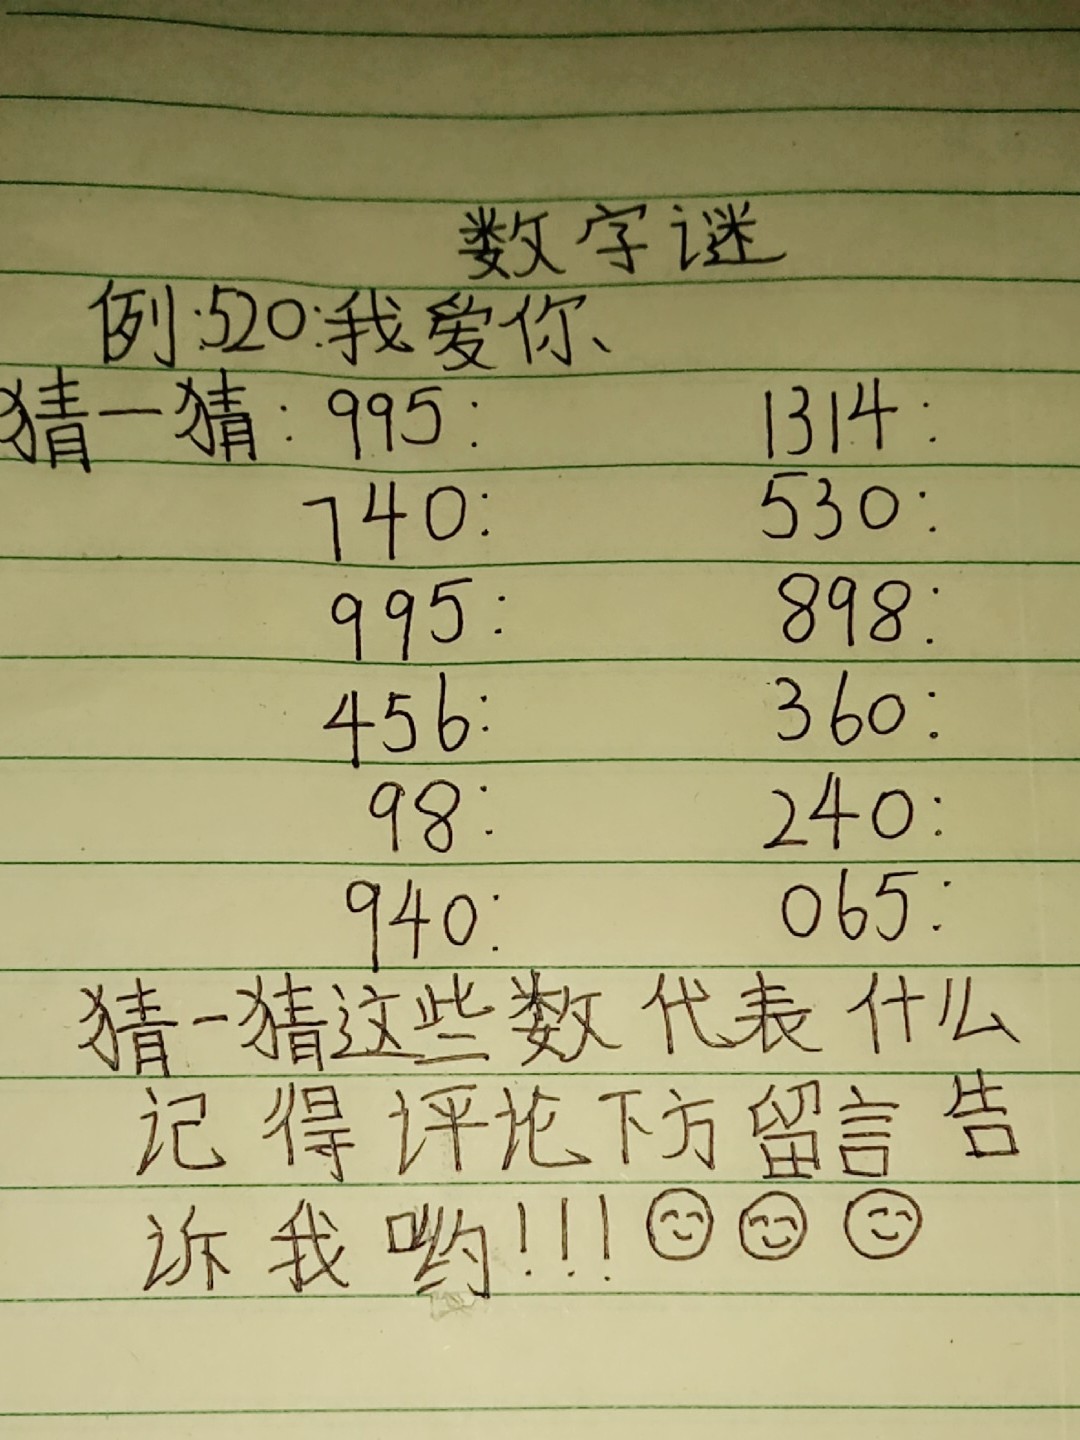 数字谜
例:520:我爱你、
猜一猜: 995: 1314:
740: 530:
995: 898:
456: 360:
98: 240:
940: 065:
猜一猜这些数代表什么
记得评论下方留言告
诉我哟!!!